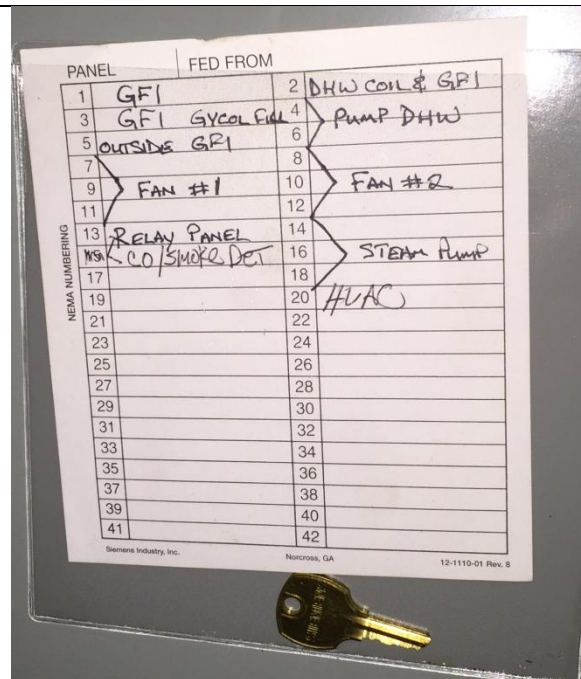 PANEL FED FROM
1 GFI 2 DHW COIL & GFI
3 GFI GYCOL FILL 4 PUMP DHW
5 OUTSIDE GFI 6
7 8
9 FAN #1 10 FAN #2
11 12
13 RELAY PANEL 14
CO/SMOKE DET 16 STEAM PUMP
17 18
19 20 HVAC
21 22
23 24
25 26
27 28
29 30
31 32
33 34
35 36
37 38
39 40
41 42
NEMA NUMBERING
Siemens Industry, Inc. Norcross, GA 12-1110-01 Rev. 8